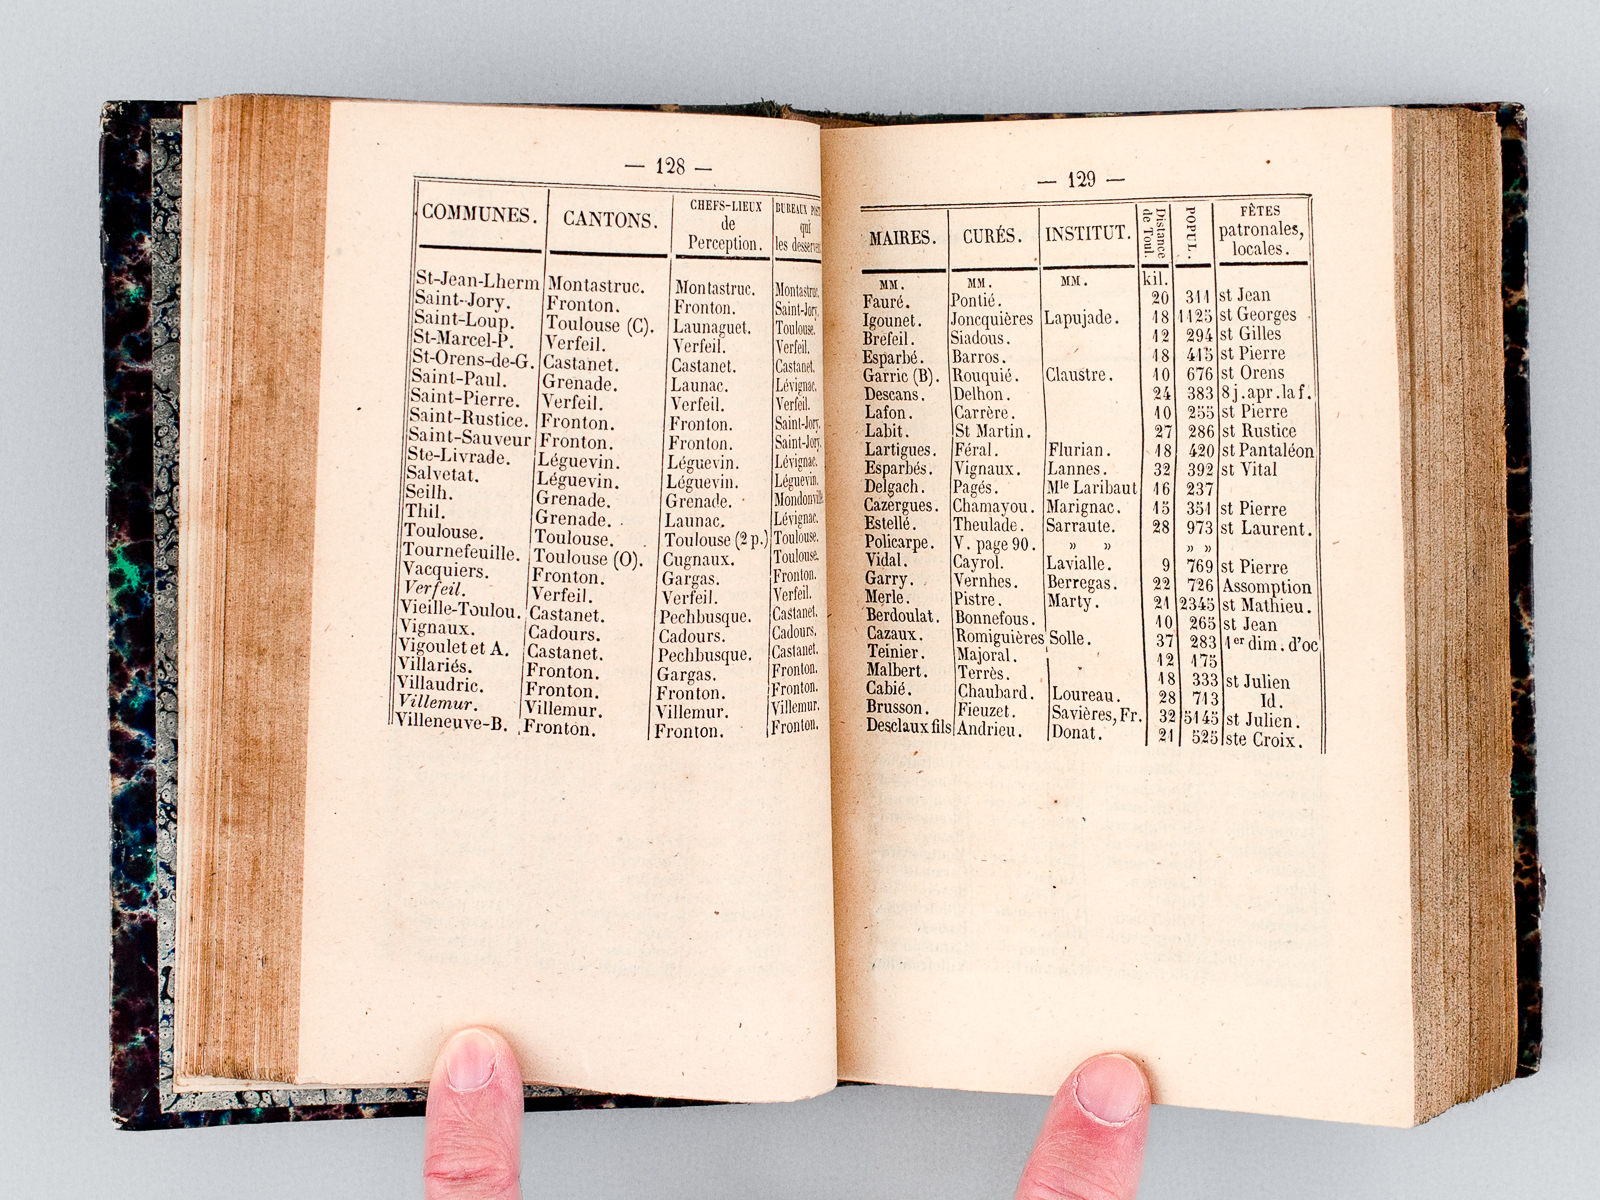 — 128 —
COMMUNES. CANTONS. CHEFS-LIEUX de Perception. BUREAUX qui les desservent
St-Jean-Lherm Montastruc. Montastruc. Montastruc.
Saint-Jory. Fronton. Fronton. Saint-Jory.
Saint-Loup. Toulouse (C). Launaguet. Toulouse.
St-Marcel-P. Verfeil. Verfeil. Verfeil.
St-Orens-de-G. Castanet. Castanet. Castanet.
Saint-Paul. Grenade. Launac. Lévignac.
Saint-Pierre. Verfeil. Verfeil. Verfeil.
Saint-Rustice. Fronton. Fronton. Saint-Jory.
Saint-Sauveur Fronton. Fronton. Saint-Jory.
Ste-Livrade. Léguevin. Léguevin. Lévignac.
Salvetat. Léguevin. Léguevin. Léguevin.
Seilh. Grenade. Grenade. Mondonville
Thil. Grenade. Launac. Lévignac.
Toulouse. Toulouse. Toulouse (2 p.) Toulouse.
Tournefeuille. Toulouse (O). Cugnaux. Toulouse.
Vacquiers. Fronton. Gargas. Fronton.
Verfeil. Verfeil. Verfeil. Verfeil.
Vieille-Toulou. Castanet. Pechbusque. Castanet.
Vignaux. Cadours. Cadours. Cadours.
Vigoulet et A. Castanet. Pechbusque. Castanet.
Villariés. Fronton. Gargas. Fronton.
Villaudric. Fronton. Fronton. Fronton.
Villemur. Villemur. Villemur. Villemur.
Villeneuve-B. Fronton. Fronton. Fronton.
— 129 —
MAIRES. CURÉS. INSTITUT. Distance de Toul. POPUL. FÊTES patronales, locales.
MM. MM. MM. kil.
Fauré. Pontié. 20 311 st Jean
Igounet. Joncquières Lapujade. 18 1125 st Georges
Brefeil. Siadous. 12 294 st Gilles
Esparbé. Barros. 18 415 st Pierre
Garric (B). Rouquié. Claustre. 10 676 st Orens
Descans. Delhon. 24 383 8 j. apr. la f.
Lafon. Carrère. 10 255 st Pierre
Labit. St Martin. 27 286 st Rustice
Lartigues. Féral. Flurian. 18 420 st Pantaléon
Esparbés. Vignaux. Lannes. 32 392 st Vital
Delgach. Pagés. Mle Laribaut 16 237
Cazergues. Chamayou. Marignac. 15 351 st Pierre
Estellé. Theulade. Sarraute. 28 973 st Laurent.
Policarpe. V. page 90. » » » »
Vidal. Cayrol. Lavialle. 9 769 st Pierre
Garry. Vernhes. Berregas. 22 726 Assomption
Merle. Pistre. Marty. 21 2345 st Mathieu.
Berdoulat. Bonnefous. 10 265 st Jean
Cazaux. Romiguières Solle. 37 283 1er dim. d'oc
Teinier. Majoral. 12 175
Malbert. Terrès. 18 333 st Julien
Cabié. Chaubard. Loureau. 28 713 Id.
Brusson. Fieuzet. Savières, Fr. 32 5145 st Julien.
Desclaux fils Andrieu. Donat. 21 525 ste Croix.